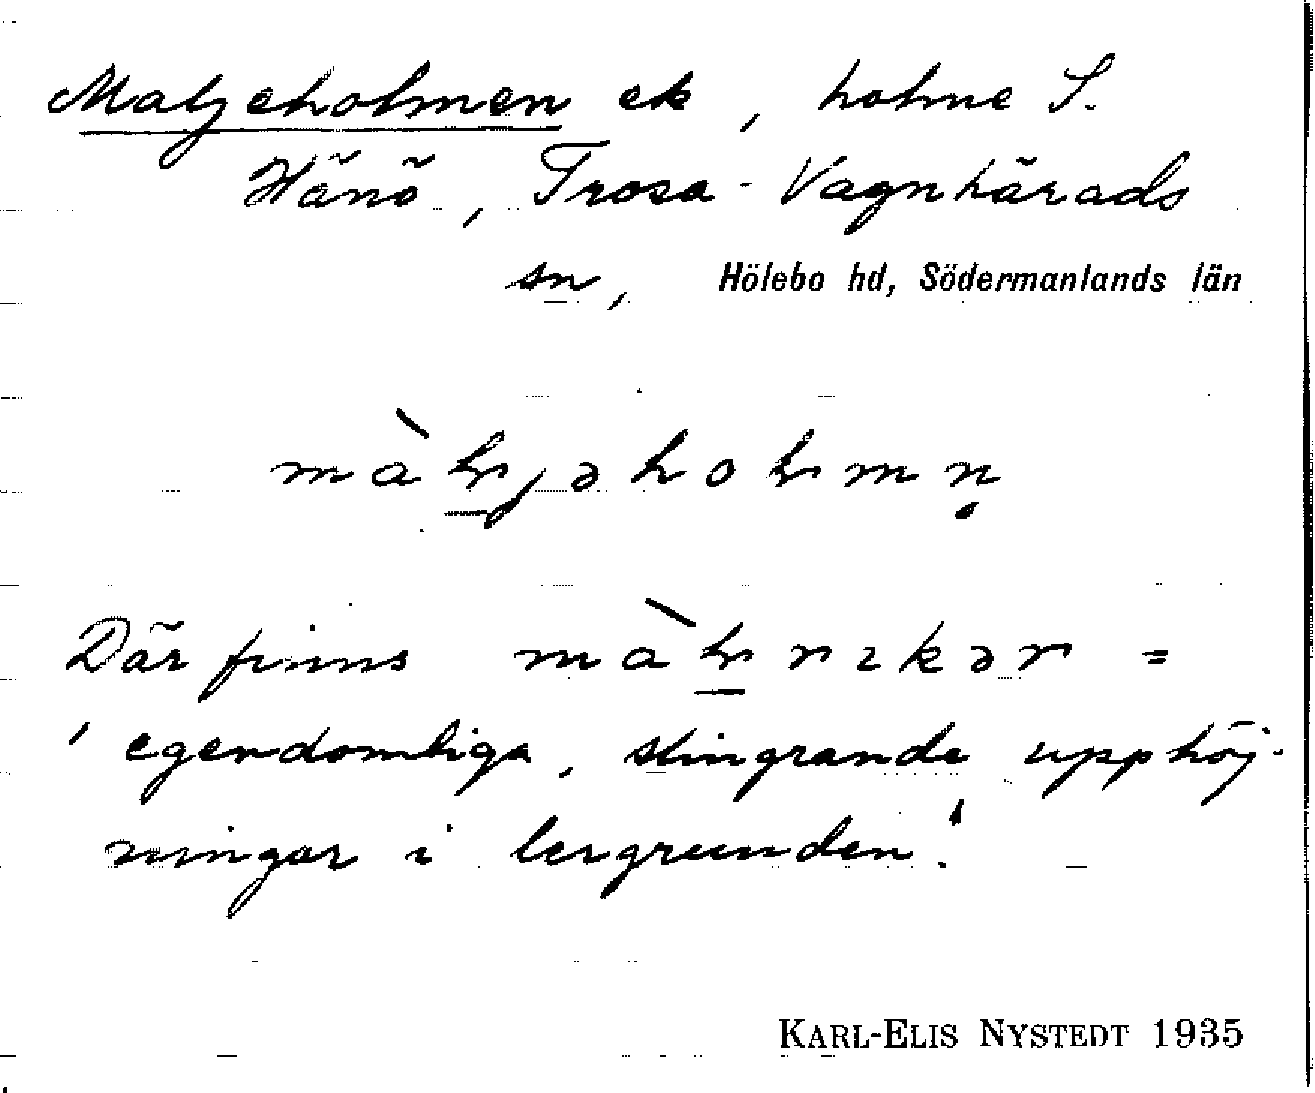 Maljeholmen ek, holme S.
Hånö, Trosa-Vagnhärads
sn, Hölebo hd, Södermanlands län
màɬjəhoɬmn̥
Där finns màɬrɩkər =
' egendomliga, stingrande upphöj-
ningar i lergrunden.'
KARL-ELIS NYSTEDT 1935